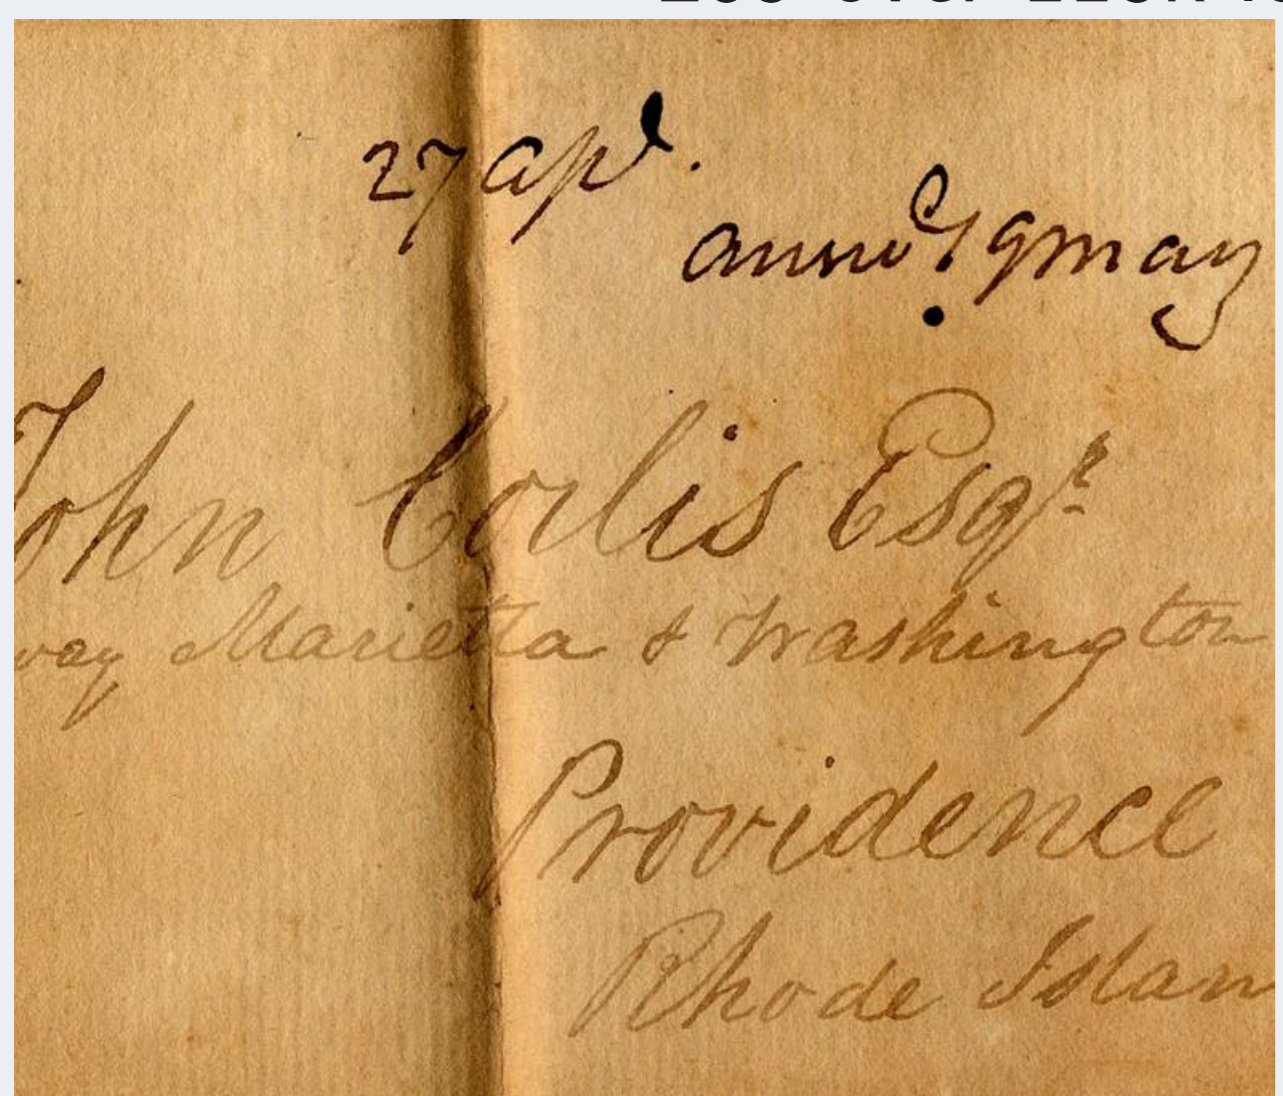 27 apl.
9 may
John Corlis Esqr.
way Marietta & Washington
Providence
Rhode Islan